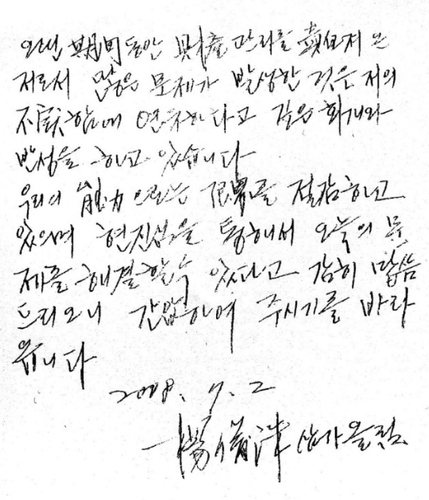 오년 期間동안 財産관리를 責任져 온
저로서 많은 문제가 발생한 것은 저의
不民함에 연유한다고 깊은 회개와
반성을 하고 있습니다
우리의 能力으로는 限界를 절감하고
있으며 현진님을 통해서 오늘의 문
제를 해결할수 있다고 감히 말씀
드리오니 간엽하여 주시기를 바라
옵니다
2008. 9. 2
삼가올림.